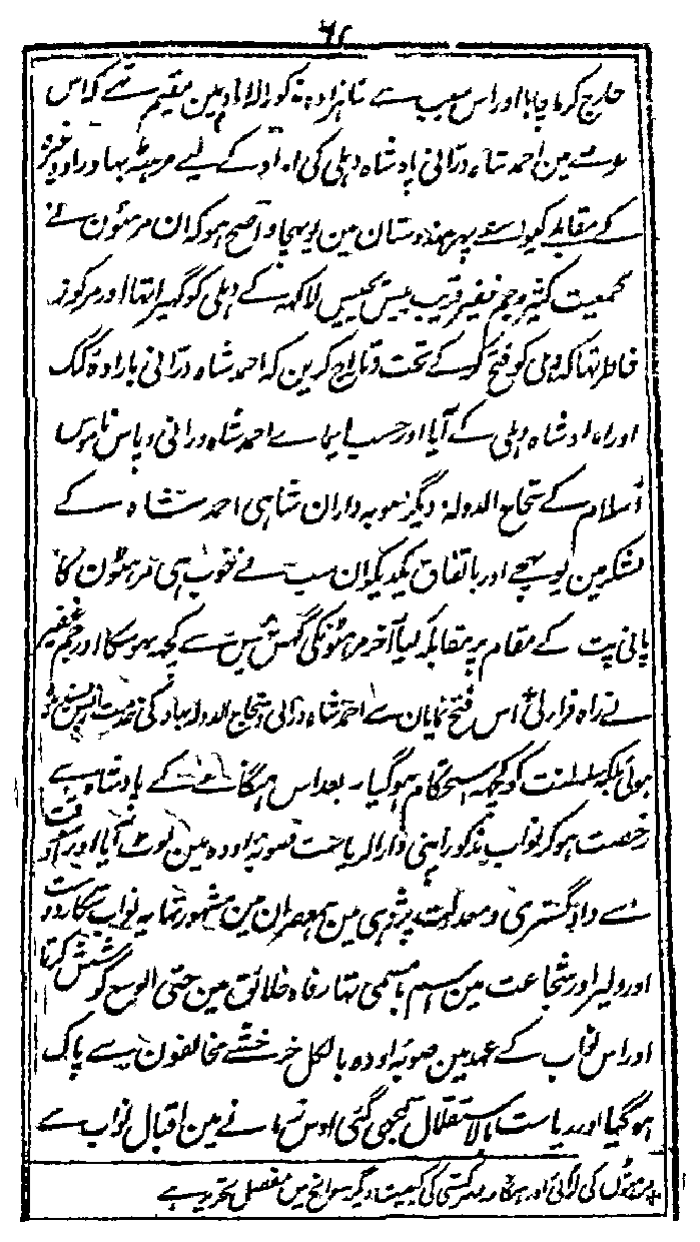 ۶۸
خارج کرنا چاہا اور اس سبب سے شاہزادہ کو رالہ آباد مین مقیم تھے کہ اس
عرصے مین احمد شاہ درّانی بادشاہ دہلی کی امداد کے لیے مرہٹہ بہادر اود غیرہ
کے مقابلہ کیواسطے پھر ہندوستان مین پہونچا واضح ہو کہ ان مرہٹون نے
بجمعیت کثیر و جم غفیر قریب بیس پچیس لاکھہ کے دہلی کو گھیرا تھا اور مرکوز
خاطر تھا کہ دہلی کو فتح کر کے تخت و تاراج کرین کہ احمد شاہ درّانی بارادہ کمک
اور امداد شاہ دہلی کے آیا اور حسب ایماے احمد شاہ درانی و پاس ناموس
اسلام کے شجاع الدولہ و دیگر صوبہ داران شاہی احمد شاہ کے
لشکر مین پہونچے اور باتفاق یکدیگر ان سب نے خوب ہی مرہٹون کا
پانی پت کے مقام پر مقابلہ کیا آخر مرہٹونکی گھس پیس سے کچھہ نہوسکا اور جم غفیر
نے راہ فرار لی اس فتح نمایان سے احمد شاہ درانی و شجاع الدولہ بہادر کی خدمت
ہوئی بلکہ سلطنت کو کچھہ استحکام ہوگیا۔ بعد اس ہنگامے کے بادشاہ سے
رخصت ہو کر نواب مذکور اپنی دار الریاست صوبہ اودہ مین لوٹ آیا اور
سے داد گستری و معدلت پژوہی مین ہمعصران مین مشہور تھا یہ نواب
اور دلیر اور شجاعت مین اسم بامسمی تھا رفاہ خلائق مین حتی الوسع کوشش کرتا
اور اس نواب کے عہد مین صوبہ اودہ بالکل خرخشے مخالفون سے پاک
ہوگیا اور ریاست بالاستقلال سمجھی گئی اوس زمانے مین اقبال نواب سے
مرہٹون کی لڑائی اور ہنگامہ کی کیفیت دیگر سوانح مین مفصل تحریر ہے